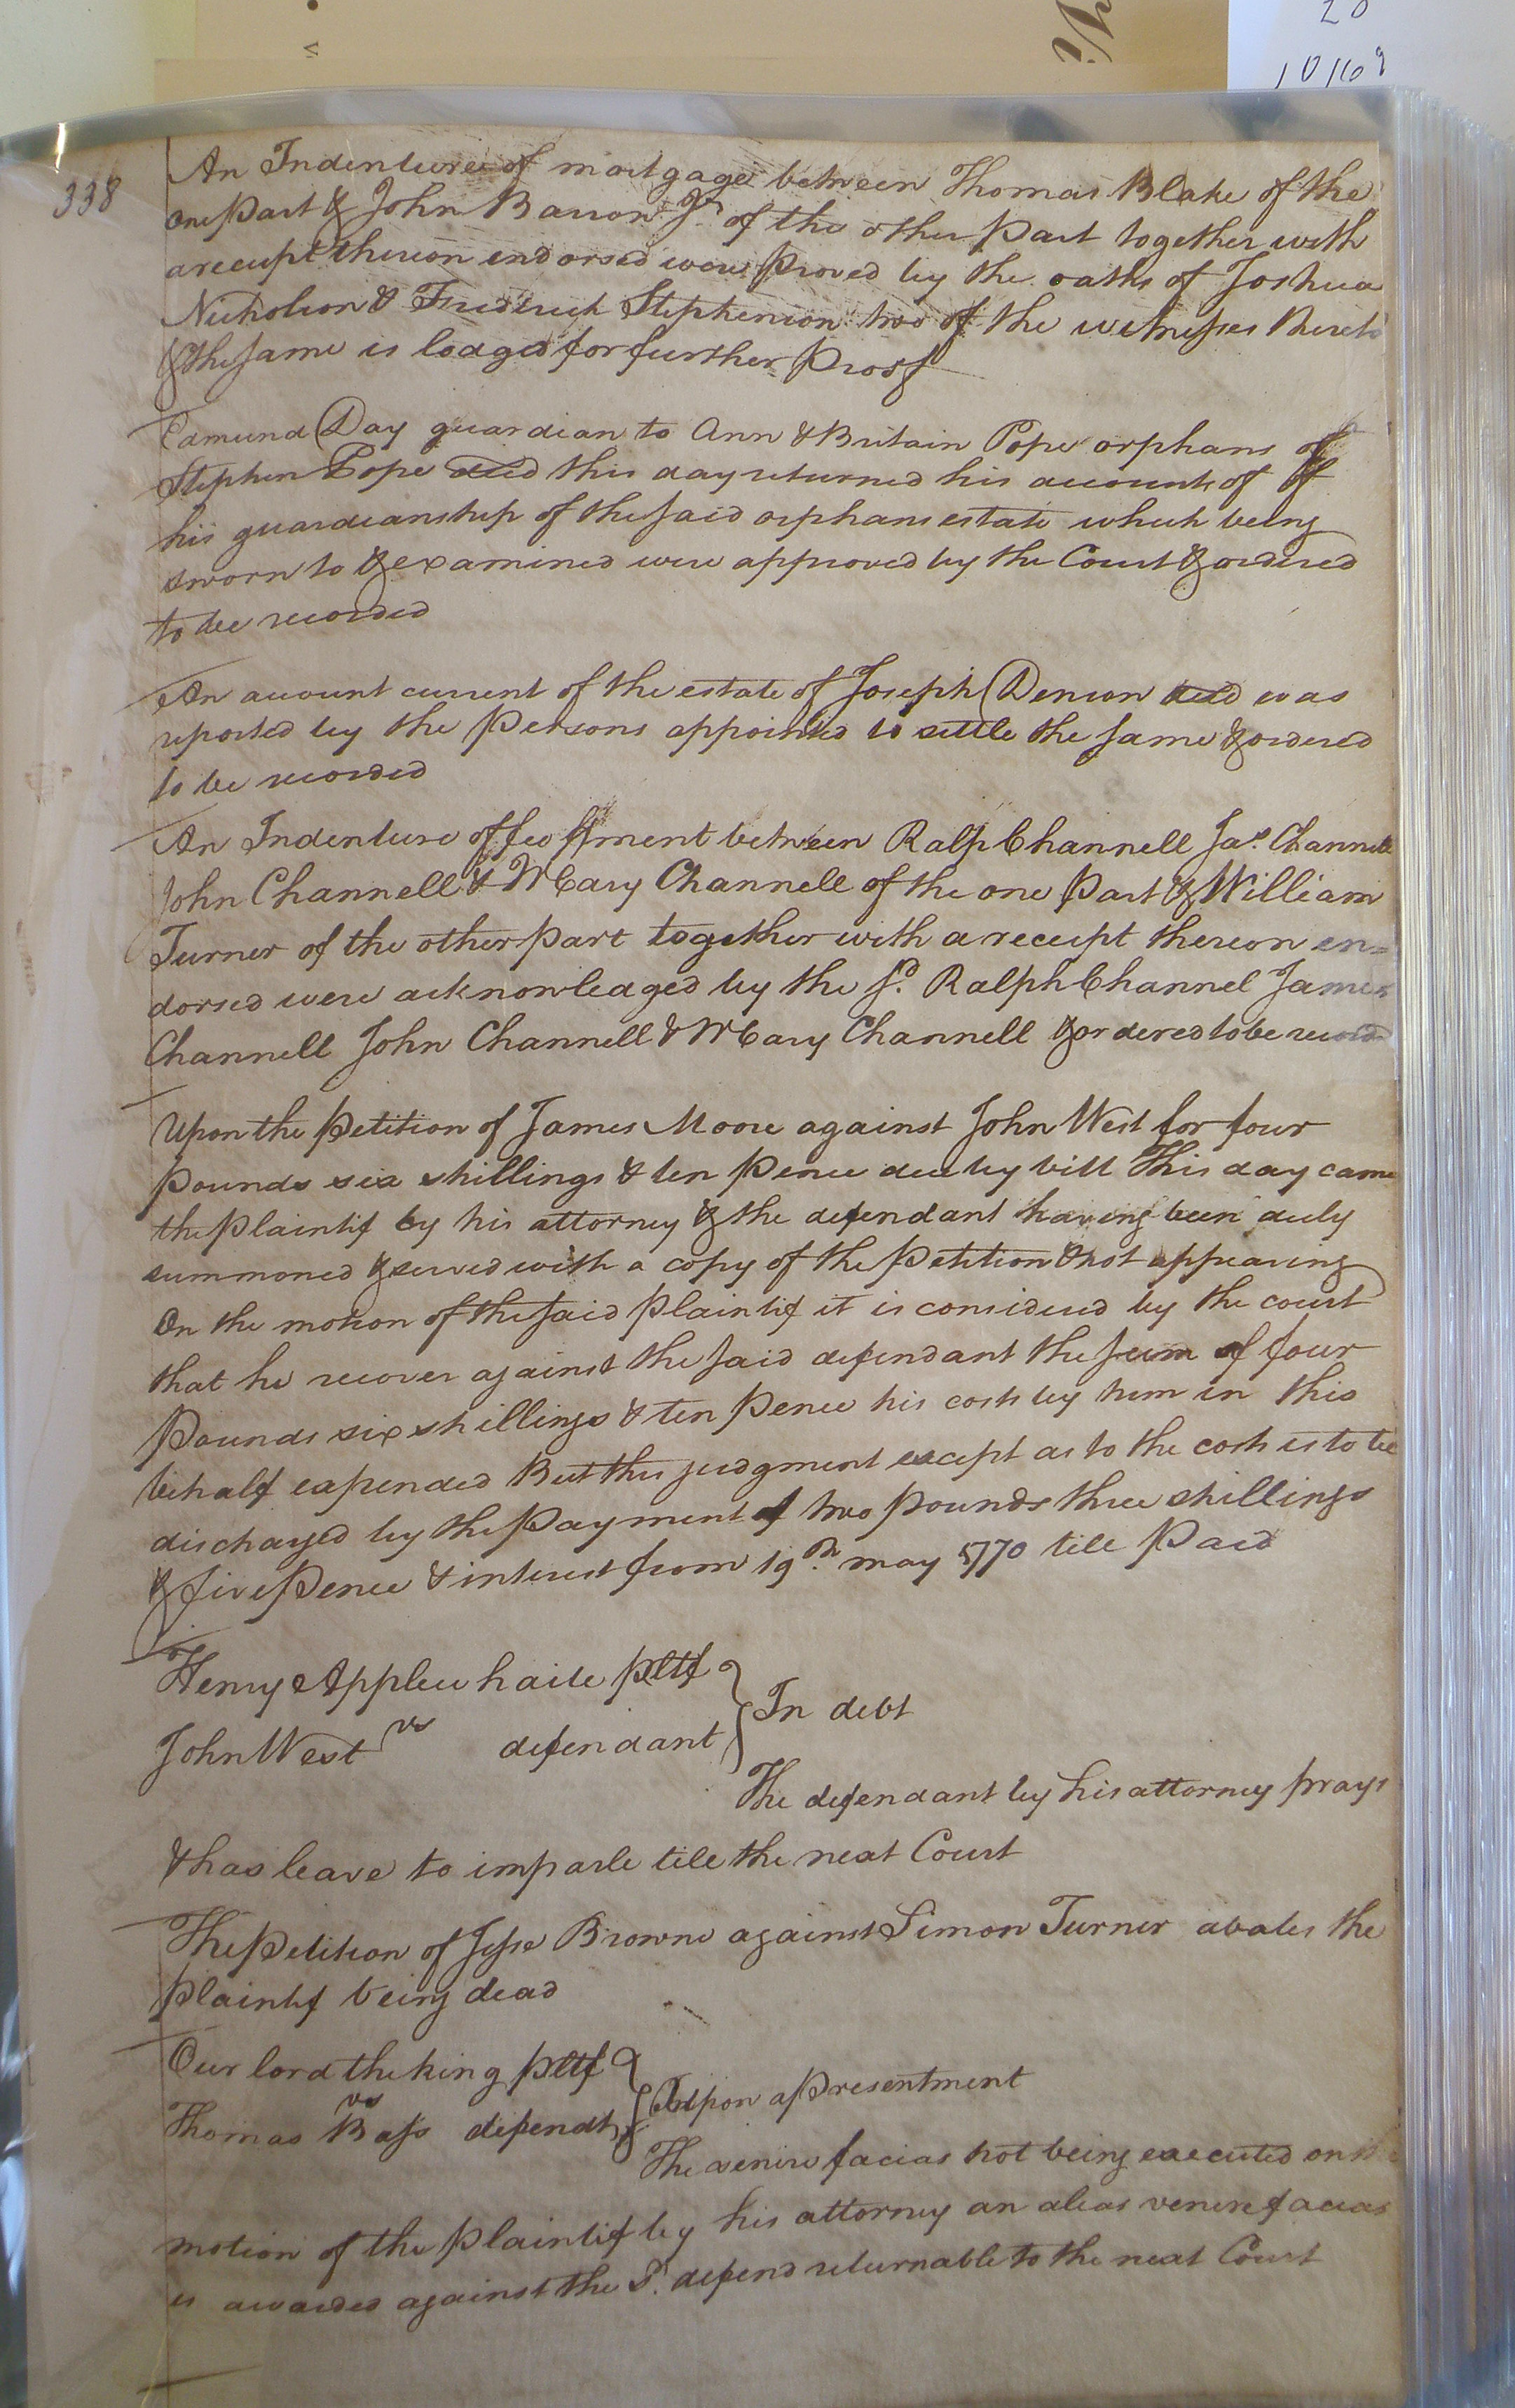 20
10169
338
An Indenture of mortgage between Thomas Blake of the
one part & John Barron Jr. of the other part together with
a receipt thereon endorsed were proved by the oaths of Joshua
Nicholson & Frederick Stephenson two of the witnesses thereto
& the same is lodged for further proof
Edmund Day guardian to Ann & Britain Pope orphans of
Stephen Pope decd this day returned his accounts of
his guardianship of the said orphans estate which being
sworn to & examined were approved by the Court & ordered
to be recorded
An account current of the estate of Joseph Denson decd was
reported by the persons appointed to settle the same & ordered
to be recorded
An Indenture of feoffment between Ralph Channell Jas. Channell
John Channell & Mary Channell of the one part & William
Turner of the other part together with a receipt thereon en=
dorsed were acknowledged by the sd. Ralph Channel James
Channell John Channell & Mary Channell & ordered to be record
Upon the petition of James Moore against John West for four
pounds six shillings & ten pence due by bill This day came
the plaintif by his attorney & the defendant having been duly
summoned & served with a copy of the petition & not appearing
On the motion of the said plaintif it is considered by the court
that he recover against the said defendant the sum of four
pounds six shillings & ten pence his costs by him in this
behalf expended But this judgment except as to the costs is to be
discharged by the payment of two pounds three shillings
& five pence & interest from 19th. may 1770 till paid
Henry Applewhaite pltf
vs
In debt
John West defendant
The defendant by his attorney prays
& has leave to imparle till the next Court
The petition of Jesse Browne against Simon Turner abates the
plaintif being dead
Our lord the king pltf
vs
Upon a presentment
Thomas Bass defendt
The venire facias not being executed on the
motion of the plaintif by his attorney an alias venire facias
is awarded against the sd. defend returnable to the next Court